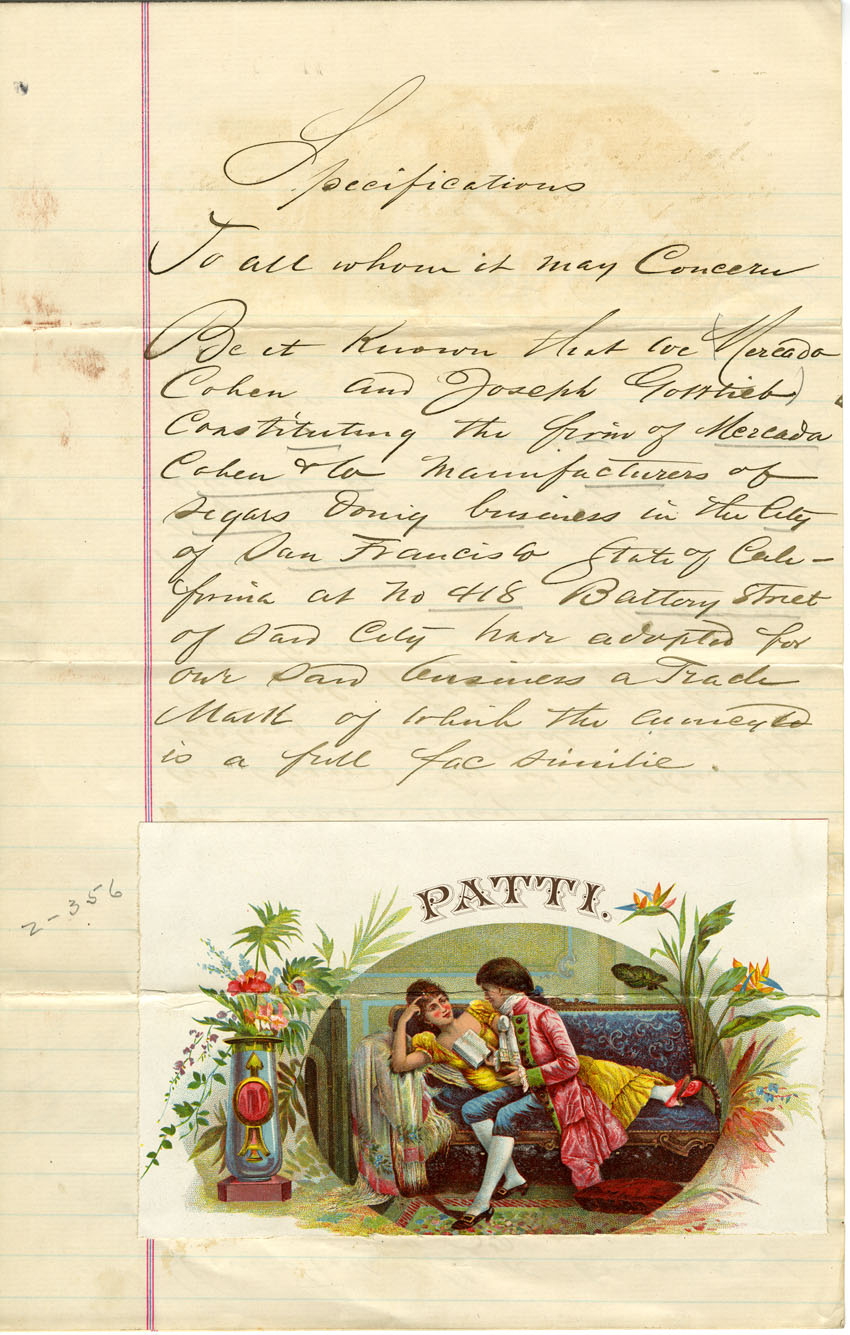 Specifications
To all whom it may Concern
Be it Known that we (Mercado
Cohen and Joseph Gottlieb)
Constituting the firm of Mercada
Cohen & Co manufacturers of
segars Doing business in the City
of San Francisco State of Cali-
fornia at No 418 Battery Street
of said City have adopted for
our said business a Trade
Mark of which the annexed
is a full fac similie.
2-356
PATTI.